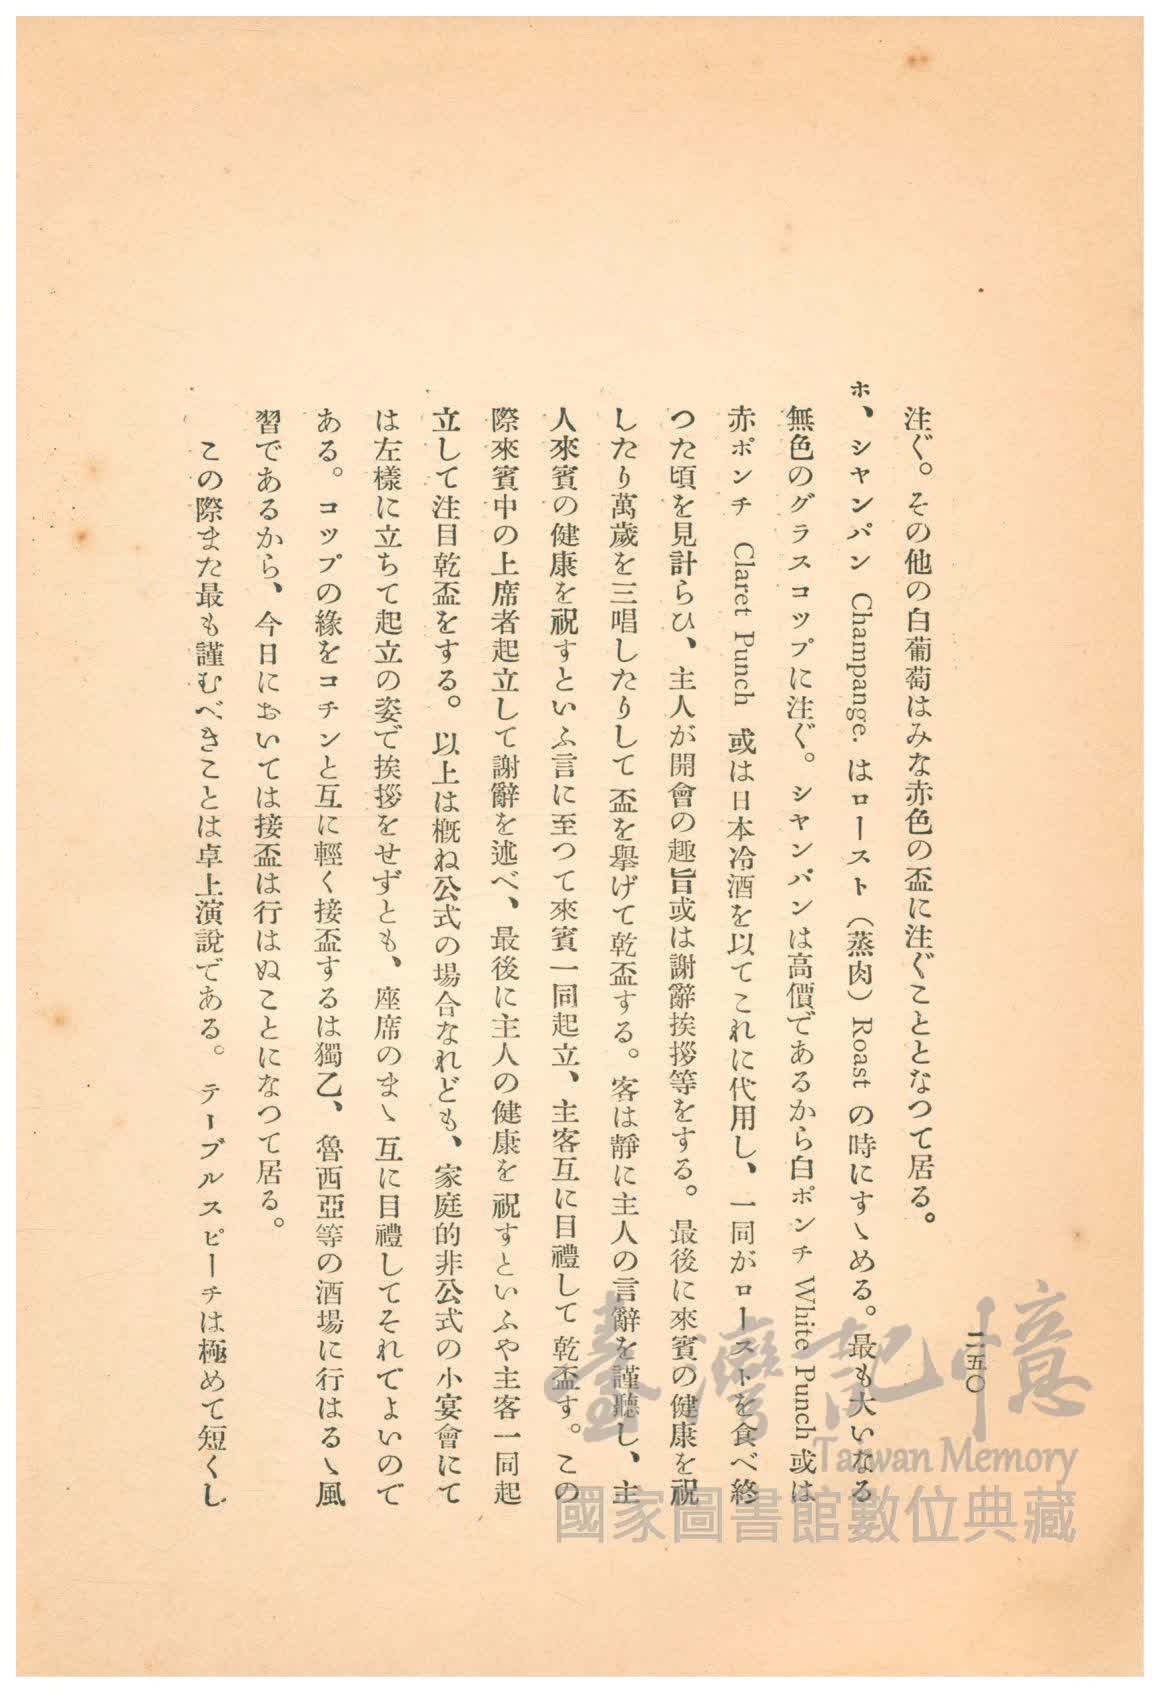 二五〇
注ぐ。その他の白葡萄はみな赤色の盃に注ぐこととなつて居る。
ホ、シャンパン Champange. はロースト（蒸肉）Roast の時にすゝめる。最も大いなる
無色のグラスコップに注ぐ。シャンパンは高價であるから白ポンチ White Punch 或は
赤ポンチ Claret Punch 或は日本冷酒を以てこれに代用し、一同がローストを食べ終
つた頃を見計らひ、主人が開會の趣旨或は謝辭挨拶等をする。最後に來賓の健康を祝
したり萬歲を三唱したりして盃を擧げて乾盃する。客は靜に主人の言辭を謹聽し、主
人來賓の健康を祝すといふ言に至つて來賓一同起立、主客互に目禮して乾盃す。この
際來賓中の上席者起立して謝辭を述べ、最後に主人の健康を祝すといふや主客一同起
立して注目乾盃をする。以上は概ね公式の場合なれども、家庭的非公式の小宴會にて
は左樣に立ちて起立の姿で挨拶をせずとも、座席のまゝ互に目禮してそれでよいので
ある。コップの緣をコチンと互に輕く接盃するは獨乙、魯西亞等の酒場に行はるゝ風
習であるから、今日においては接盃は行はぬことになつて居る。
この際また最も謹むべきことは卓上演說である。テーブルスピーチは極めて短くし
臺灣記憶
Taiwan Memory
國家圖書館數位典藏